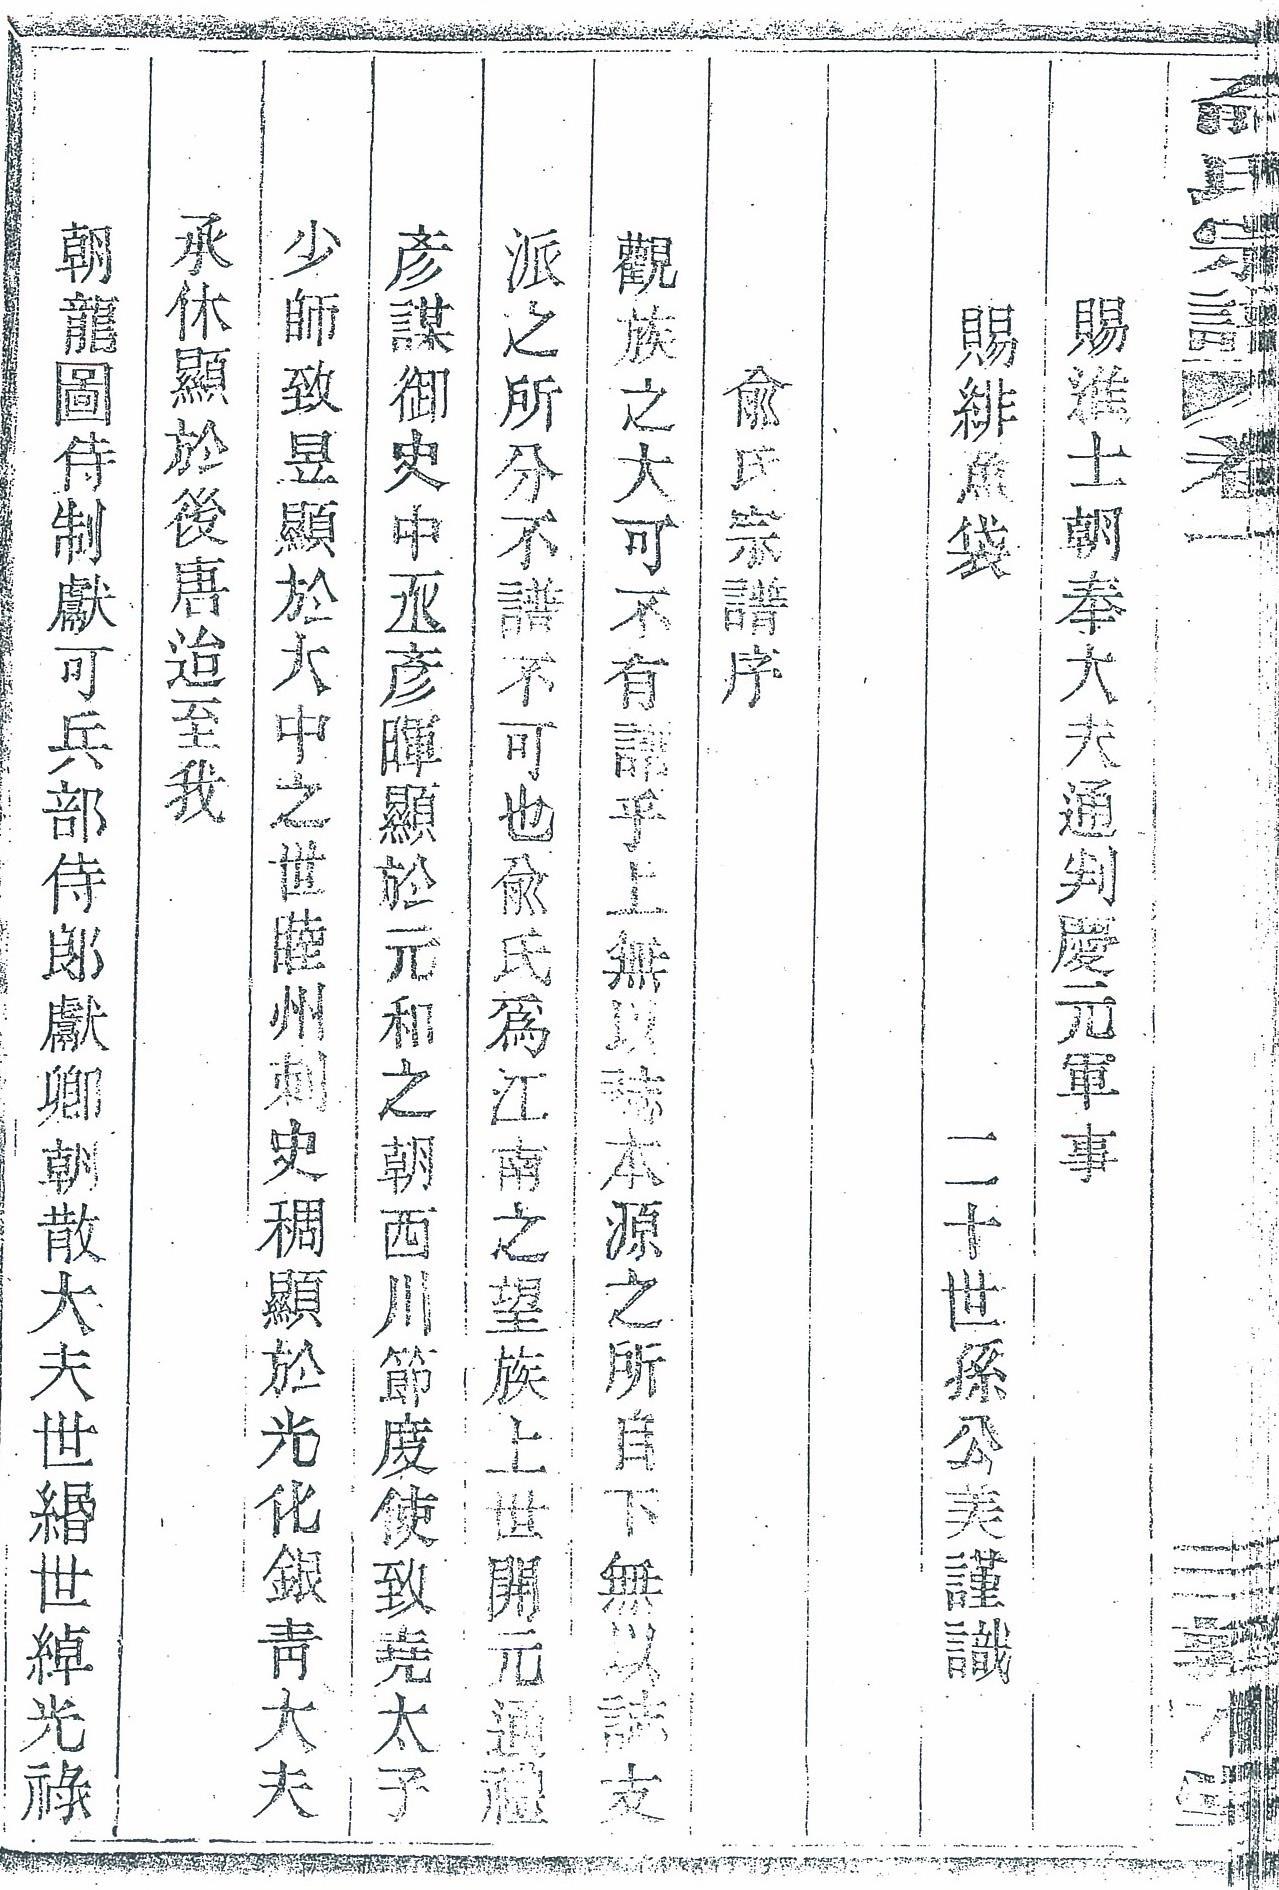 俞氏宗譜 卷一
賜進士朝奉大夫通判慶元軍事
賜緋魚袋 二十世孫公美謹識
俞氏宗譜序
觀族之大可不有譜乎上無以誌本源之所自下無以誌支
派之所分不譜不可也俞氏爲江南之望族上世開元通禮
彥謀御史中丞彥暉顯於元和之朝西川節度使致堯太子
少師致昱顯於大中之世睦州刺史稠顯於光化銀靑大夫
承休顯於後唐迨至我
朝龍圖侍制獻可兵部侍郎獻卿朝散大夫世緡世綽光祿